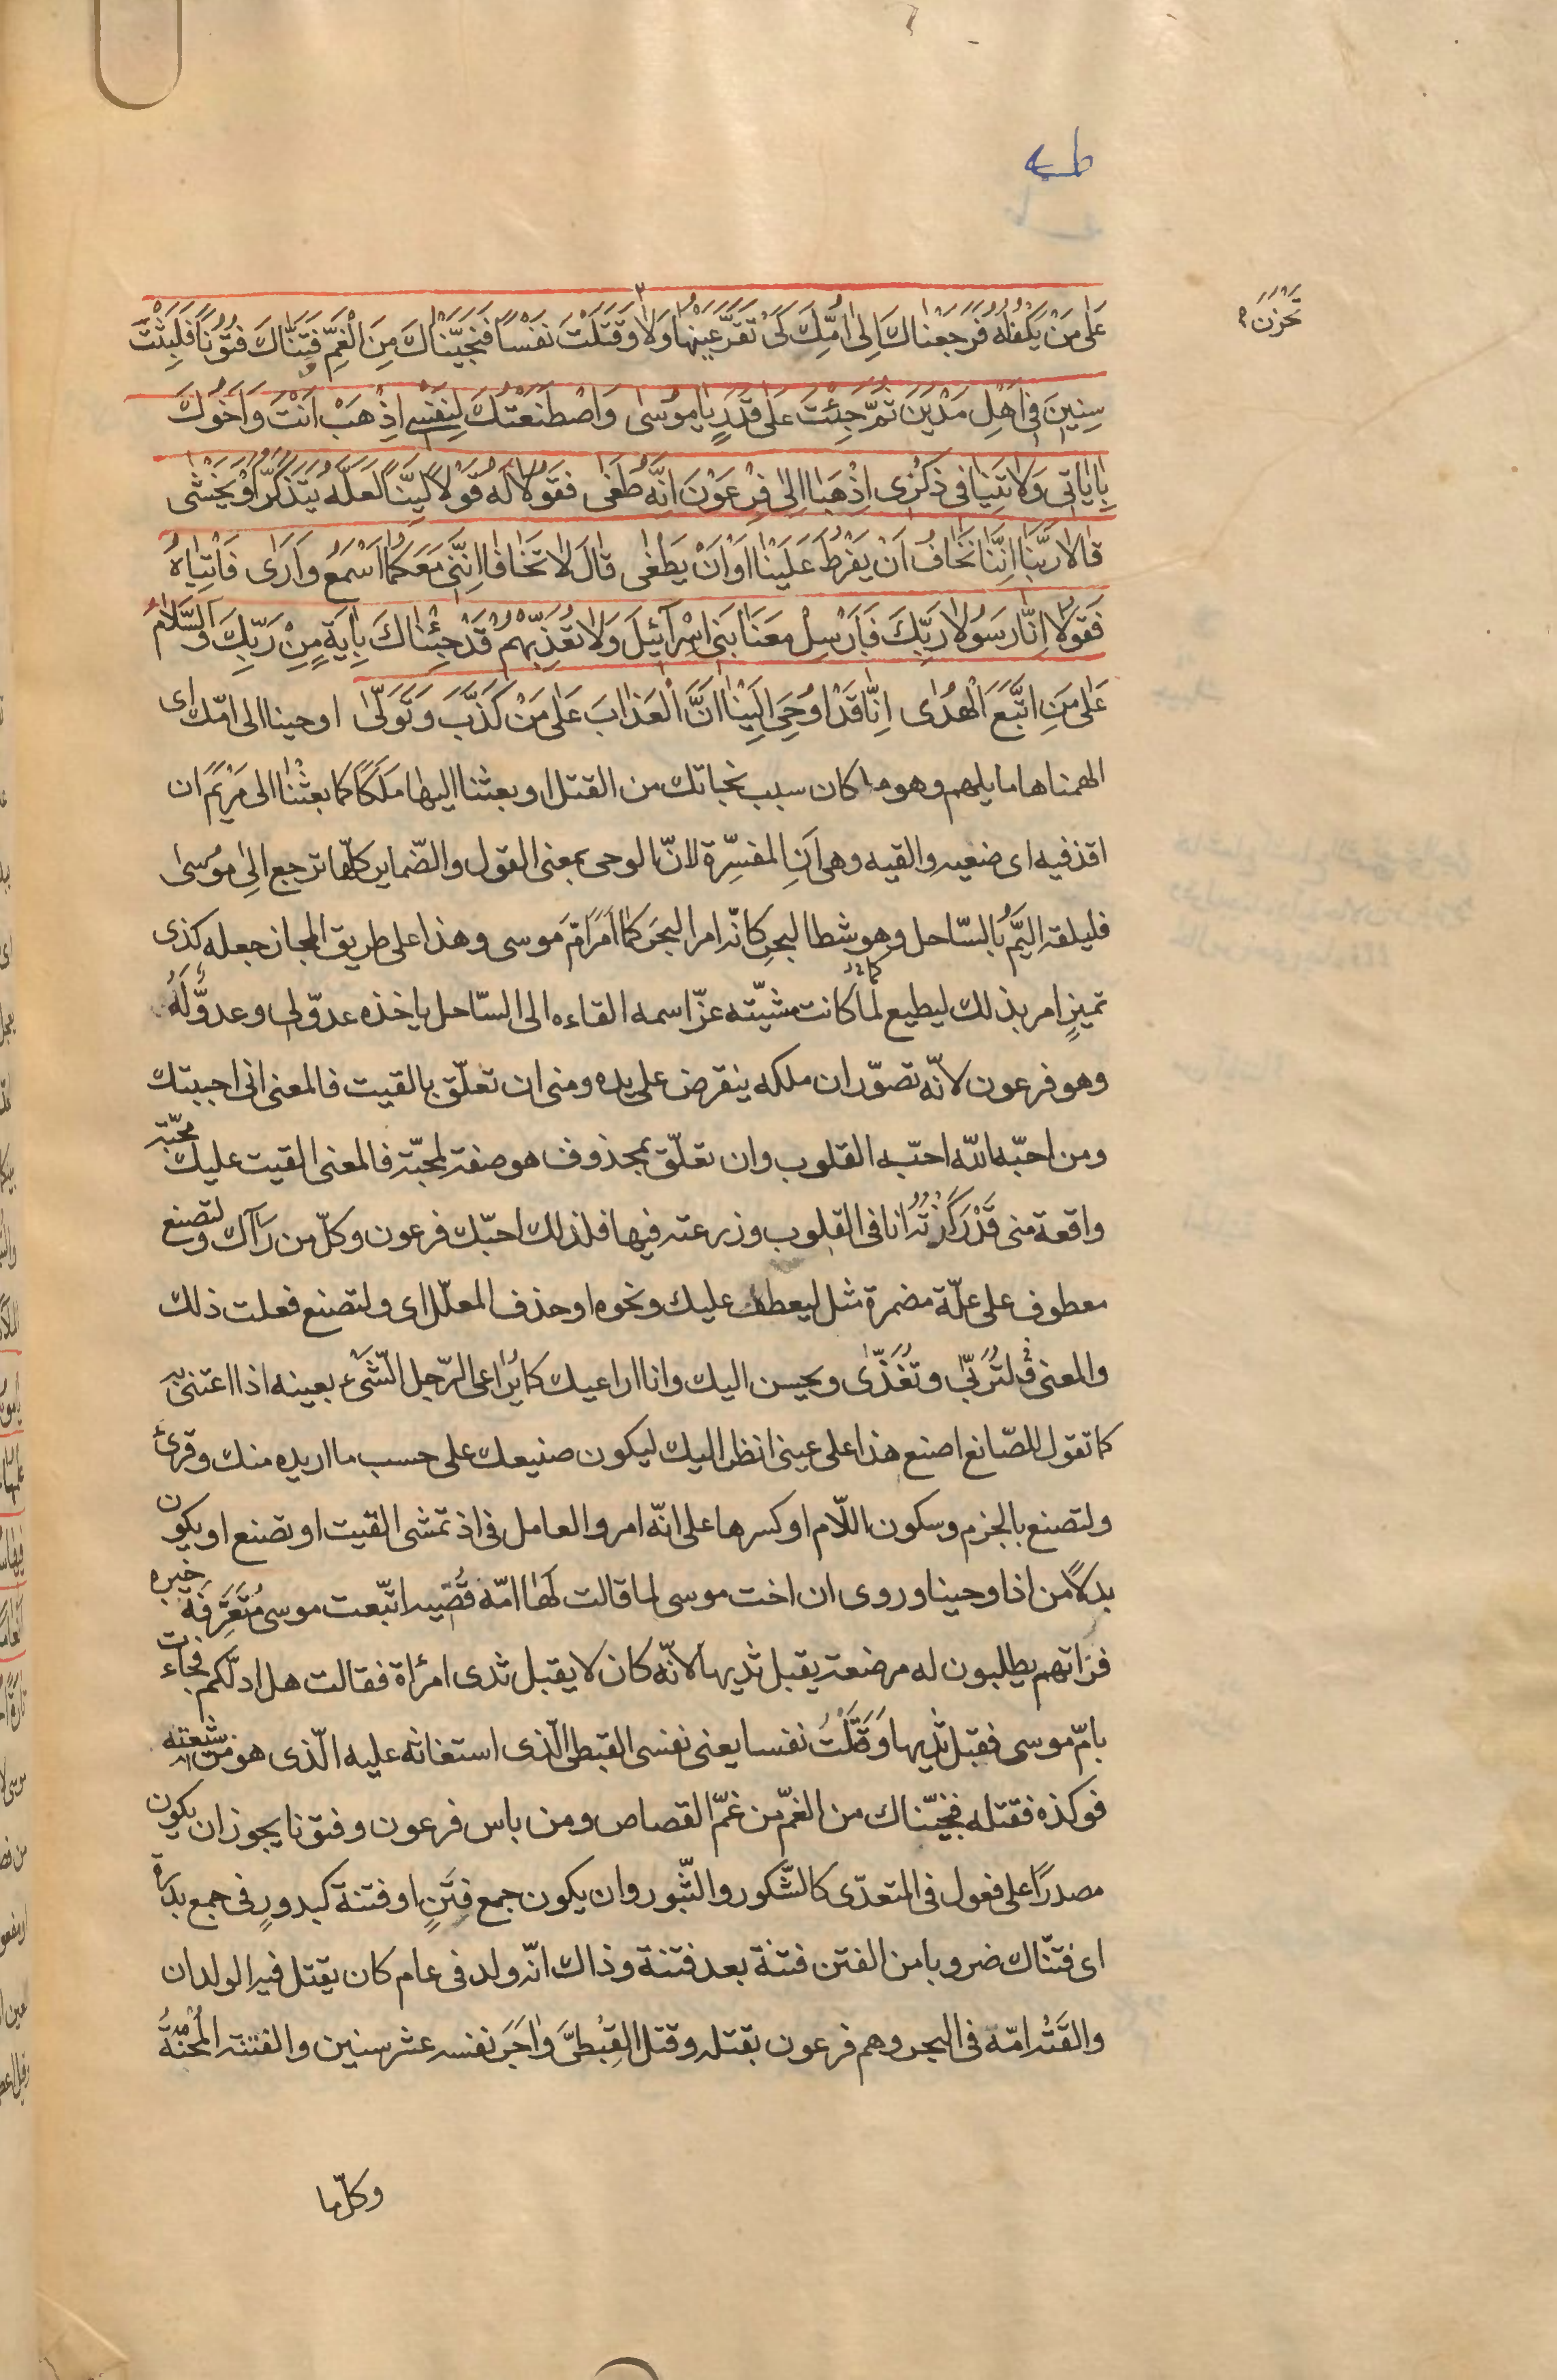 طه
عَلٰى مَنْ يَكْفُلُهُ فَرَجَعْنٰاكَ اِلٰى اُمِّكَ كَىْ تَقَرَّ عَيْنُهٰا وَلٰا وَقَتَلْتَ نَفْسًا فَنَجَّيْنٰاكَ مِنَ الْغَمِّ وَفَتَنّٰاكَ فُتُونًا فَلَبِثْتَ
تَحْزَنَ
سِنِينَ فِى اَهْلِ مَدْيَنَ ثُمَّ جِئْتَ عَلٰى قَدَرٍ يٰا مُوسٰى وَاصْطَنَعْتُكَ لِنَفْسِى اِذْهَبْ اَنْتَ وَاَخُوكَ
بِاٰيٰاتِى وَلٰا تَنِيٰا فِى ذِكْرِى اِذْهَبٰا اِلٰى فِرْعَوْنَ اِنَّهُ طَغٰى فَقُولٰا لَهُ قَوْلًا لَيِّنًا لَعَلَّهُ يَتَذَكَّرُ اَوْ يَخْشٰى
قٰالٰا رَبَّنٰا اِنَّنٰا نَخٰافُ اَنْ يَفْرُطَ عَلَيْنٰا اَوْ اَنْ يَطْغٰى قٰالَ لٰا تَخٰافٰا اِنَّنِى مَعَكُمٰا اَسْمَعُ وَاَرٰى فَأْتِيٰاهُ
فَقُولٰا اِنّٰا رَسُولٰا رَبِّكَ فَاَرْسِلْ مَعَنٰا بَنِى اِسْرٰآئِيلَ وَلٰا تُعَذِّبْهُمْ قَدْ جِئْنٰاكَ بِاٰيَةٍ مِنْ رَبِّكَ وَالسَّلٰامُ
عَلٰى مَنِ اتَّبَعَ الْهُدٰى اِنّٰا قَدْ اُوحِىَ اِلَيْنٰا اَنَّ الْعَذٰابَ عَلٰى مَنْ كَذَّبَ وَتَوَلّٰى اوحينا الى امّك اى
الهمناها ما يلهم وهو ما كان سبب نجاتك من القتل او بعثنا اليها مَلَكًا كما بعثنا الى مَرْيَمَ ان
اقذفيه اى ضعيه والقيه وهى اَنِ المفسِّرة لانّ الوحى بمعنى القول والضّماير كلّها ترجع الى موسٰى
فليلقه اليَمُّ بالسّاحل وهو شطا البحرِ كانّه امر البحرَ كما اَمَرَ اُمَّ موسى وهذا على طريق المجاز جعله كذى
تميزٍ امر بذلك ليطيع لما كانت مشيّته عزّ اسمه القاءه الى السّاحل ياخذه عدوّ لى وعدوٌّ لَهُ
وهو فرعون لانّه تصوّر ان ملكه ينقرض على يده ومنى ان تعلّق بالقيت فالمعنى انى احببتك
ومن احبّه الله احبّه القلوب وان تعلّق بمحذوف هو صفة لمحبّة فالمعنى القيت عليك محبّة
واقعة منى قَدْ رَكَزْتُهٰا انا فى القلوب وزرعته فيها فلذلك احبّك فرعون وكلّ من رَآك ولتصنع
معطوف على علّة مضمرة مثل ليعطف عليك ونحوه او حذف المعلّل اى ولتصنع فعلت ذلك
والمعنى ولتُرَبّى وتُغَذّٰى ويحسن اليك وانا اراعيك كما يُرٰاعى الرّجل الشَّىْء بعينه اذا اعتنى به
كما تقول للصّانع اصنع هذا على عينى انظر اليك ليكون صنيعك على حسب ما اريده منك وقرئ
ولتصنع بالجزم وسكون اللّام او كسرها على انّه امر والعامل فى اذ تمشى القيت او تصنع او يكون
بدلًا من اذ اوحينا وروى ان اخت موسى لما قالت لَهٰا امّه قُصّيه اتّبعت موسى مُتَعَرِّفَةً خبره
فراتهم يطلبون له مرضعة يقبل ثديها لانّه كان لا يقبل ثدى امرأة فقالت هل ادلّكم فجاءت
بامّ موسى فقبل ثديها وَقَتَلْتَ نفسا يعنى نفس القبطى الّذى استغاثه عليه الّذى هو من شيعته
فوكذه فقتله فنجّيناك من الغمّ من غمّ القصاص ومن باس فرعون وفتونا يجوز ان يكون
مصدرًا على فعول فى المتعدّى كالشّكور والثّبور وان يكون جمع فِتَنٍ او فتنة كبدورٍ فى جمع بدرة
اى فتنّاك ضروبا من الفتن فتنة بعد فتنة وذاك انّه ولد فى عام كان يقتل فيه الولدان
والقَتْه امّه فى البحر وهم فرعون بقتله وقتل القِبْطىَّ وٰاجَرَ نفسه عشر سنين والفتنة المِحْنَةُ
وكلّ ما